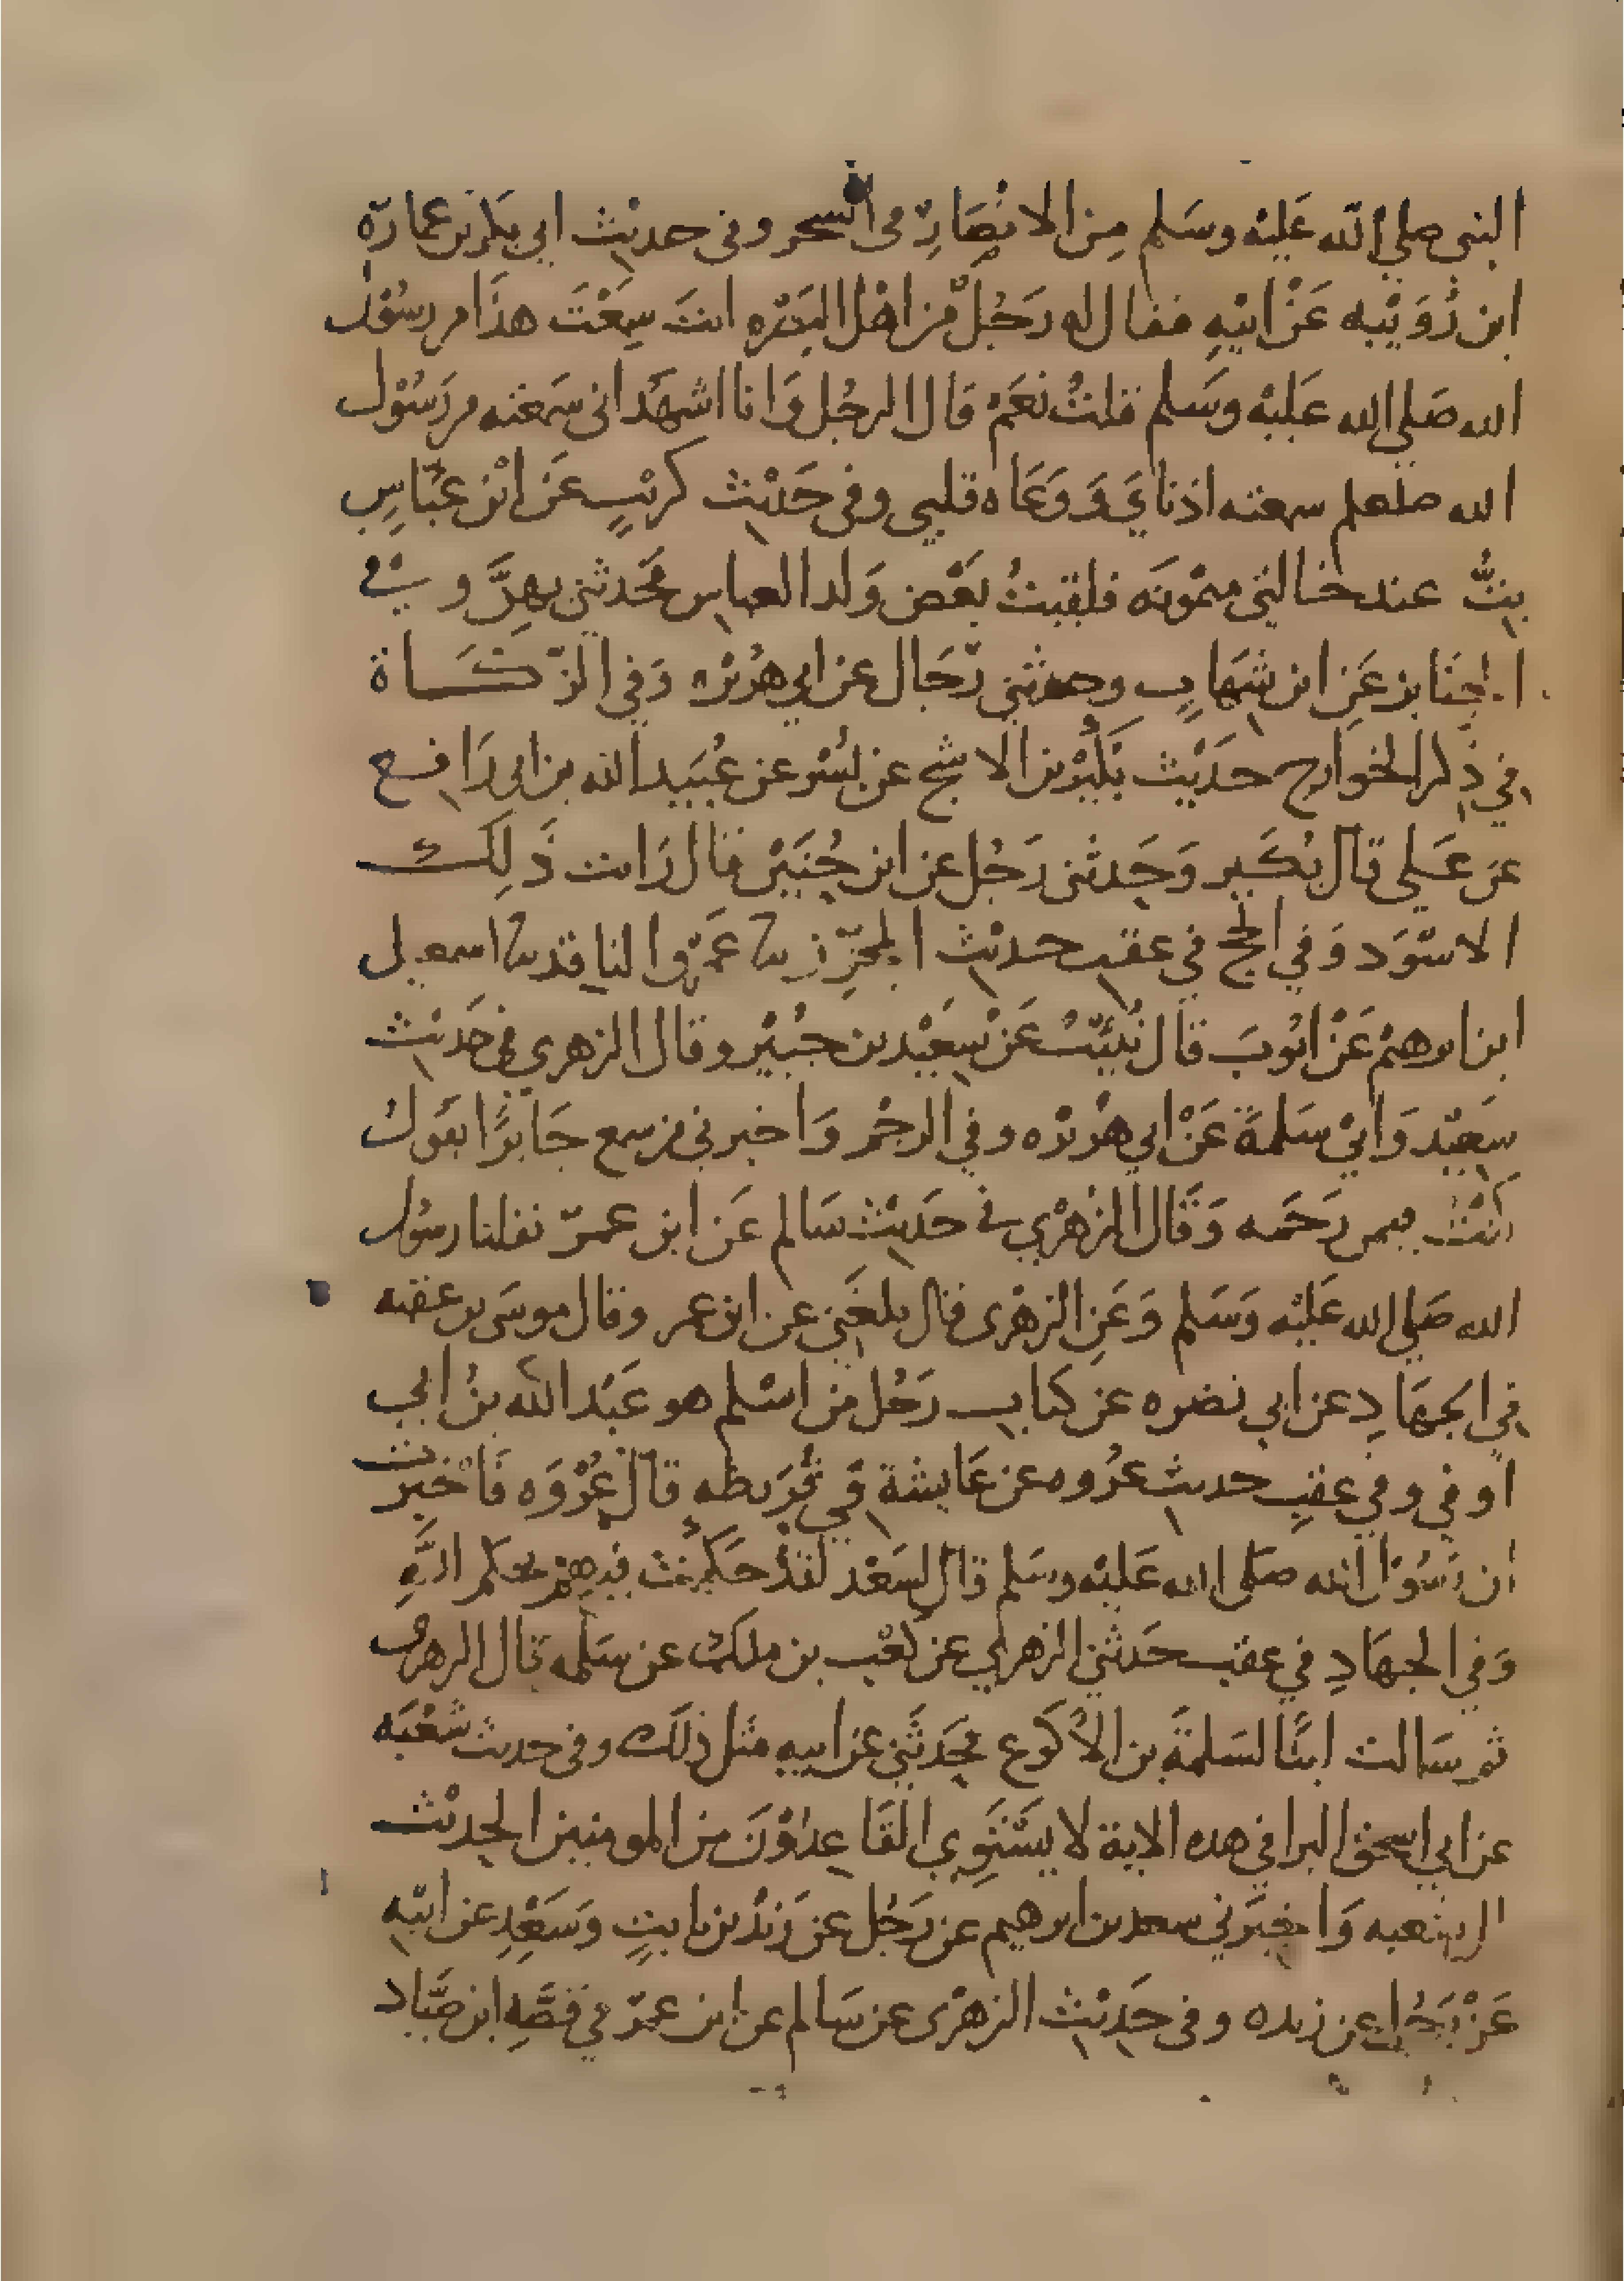 النبى صلي الله عَليْه وسَلم مِن الانصَارِ فى السحر وفى حديث ابي بكر بن عمارة
ابن رُوَيْبه عَنْ ابيْهِ فقال له رَجُل من اهْل البَصْره انتَ سمِعْتَ هذَا من رسُول
الله صَلي الله عَليْه وسَلم قلتُ نعَمْ قال الرجُل وَانا اشهَد انى سَمعته من رَسُوْل
الله صلعلم سمعته اذنايَ وَوَعَاه قلبى وفى حَديْث كريْبٍ عَن ابْن عبّاسٍ
بتُّ عند خالتي ميمْونَه فلقيتُ بَعْض وَلد العباس فحَدثنى بهنَّ وفي
الجنَايز عَن ابن شهَابٍ وحدثني رّجَال عن ابي هُرَيْره وَفي الزّكَـاة
في ذِكر الخوارج حدَيْث بُكَيْر بن الاشج عن بُسْر عن عُبَيد الله بن ابى رَافع
عَن عَلي قال بُكَير وَحَدثنى رَجُل عن ابن حُنَيْن قال رَايت ذَلِك
الاسْوَد وَفي الحج في عقب حديْث المحرّز ثنا عَمْرو الناقد ثنا اسمعيل
ابن ابرهيْم عَنْ ايُوبَ قال نُبّيْتُ عَنْ سَعِيْد بن جُبيْر وقال الزهرى فى حَديْث
سَعِيْد وَابيْ سَلمة عَنْ ابي هرْيرْه وفي الرجْم وَاخبرنى من سمع جَابرًا يقول
كنْتُ فيمن رَجَمه وَقال الزهْري في حَديْث سَالم عَن ابن عمرّ نفلنا رسُول
الله صَلي الله عَليْه وَسَلم وَعَن الزهْرى قال بلغَني عن ابن عمر وقال موسَى بن عقبه
فِي الجهَادِ عن ابي نضره عن كتاب رَجُل من اسْلم هو عَبْد الله بنُ ابي
اوفي وفي عقِب حديث عرُوه عن عَايشة في قُرَيظه قال عُرْوَه فَاخبرت
ان رَسُوْل الله صلى الله عَليْه وسَلم قال لسَعْد لقدْ حَكمْت فيهمْ بحكم الله
وَفي الجهَادِ في عقب حَدثني الزهري عن كعْب بن ملك عن سَلمه قال الزهرى
ثم سَالت ابنًا لسَلمَة بن الاَكوَع فحَدثَني عن ابيه مثل ذلك وفى حديث شعْبَه
عن ابي اسحق البرا في هذه الاية لا يسْتَوِي القَاعدُوْنَ من المومنين الحديْث
قال شعبه وَاخبَرني سعد بن ابرهيم عن رَجُل عن زَيْد بن ثابتٍ وَسَعْدٍ عن ابيْه
عَنْ رَجُل عن زيده وفى حَديْث الزهْرى عن سَالم عن ابن عمرّ في قصّهِ ابن صَيّاد